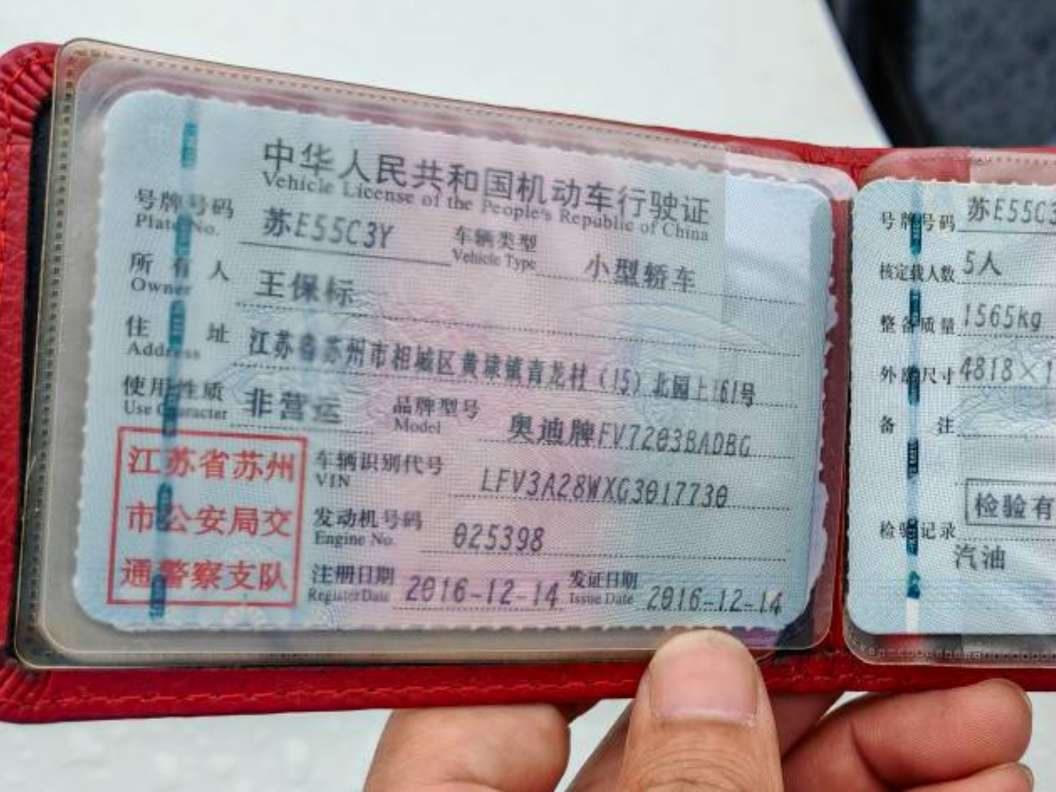 中华人民共和国机动车行驶证
Vehicle License of the People's Republic of China
号牌号码 苏E55C3Y 车辆类型 小型轿车
Plate No. Vehicle Type
所有人 王保标
Owner
住址 江苏省苏州市相城区黄埭镇青龙村(15)北园上161号
Address
使用性质 非营运 品牌型号 奥迪牌FV7203BADBG
Use Character Model
江苏省苏州
市公安局交
通警察支队
车辆识别代号 LFV3A28WXG3017730
VIN
发动机号码 025398
Engine No.
注册日期 2016-12-14 发证日期 2016-12-14
Register Date Issue Date
号牌号码 苏E55C3
核定载人数 5人
整备质量 1565kg
外廓尺寸 4818×1
备注
检验有
检验记录
汽油